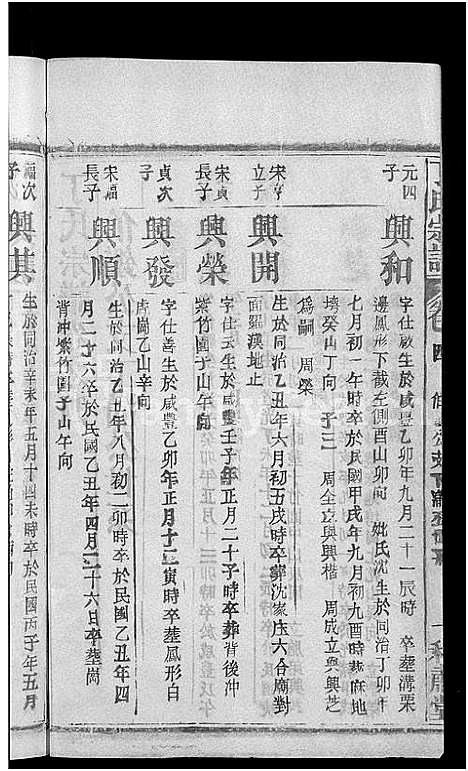 丁氏宗譜
卷四
元四子
興和
字仕啟生於咸豐乙卯年九月二十一辰時 卒塟溝栗
邊鳳形下截左側酉山卯向 妣氏沈生於同治丁卯年
七月初一午時卒於民國甲戌年九月初九酉時塟麻地
壕癸山丁向 子三 周全立與興楷 周成立與興芝
爲嗣 周榮
宋亨立子
興開
生於同治乙丑年六月初五戌時卒塟沈家庄六合廟對
面羅漢地止
宋貞長子
興榮
字仕 生於咸豐壬子年正月二十子時卒葬背後沖
紫竹園子山午向
貞次子
興發
字仕善生於咸豐乙卯年正月十二寅時卒塟鳳形白
虎圖乙山辛向
宋福長子
興順
生於同治乙丑年八月初二卯時卒於民國乙丑年四
月二十六卒於民國乙丑年四月二十六日卒塟崗
背沖紫竹園子山午向
福次子
興其
生於同治辛未年五月十四未時卒於民國丙子年五月